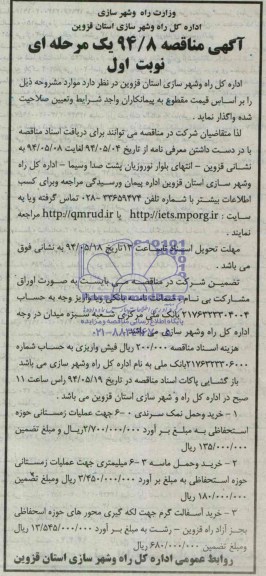 وزارت راه وشهر سازی
اداره کل راه وشهر سازی استان قزوین
آگهی مناقصه ۹۴/۸ یک مرحله ای
نوبت اول
اداره کل راه وشهر سازی استان قزوین در نظر دارد موارد مشروحه ذیل
را بر اساس قیمت مقطوع به پیمانکاران واجد شرایط وتعیین صلاحیت
شده واگذار نماید .
لذا متقاضیان شرکت در مناقصه می توانند برای دریافت اسناد مناقصه
با در دست داشتن معرفی نامه از تاریخ ۹۴/۰۵/۰۴ لغایت ۹۴/۰۵/۰۸ به
نشانی قزوین - انتهای بلوار نوروزیان پشت صدا وسیما - اداره کل راه
وشهر سازی استان قزوین اداره پیمان ورسیدگی مراجعه وبرای کسب
اطلاعات بیشتر با شماره تلفن ۳۳۶۵۹۴۷۴-۰۲۸ تماس گرفته ویا به
سایت : http://iets.mporg.ir یا http://qmrud.ir مراجعه
نمایند .
مهلت تحویل اسناد تا ساعت ۱۳ تاریخ ۹۴/۰۵/۱۸ به نشانی فوق
می باشد .
تضمین شرکت در مناقصه می بایست به صورت اوراق
مشارکت بی نام ، ضمانت نامه بانکی ویا واریز وجه به حساب
۲۱۷۶۳۲۳۳۰۴۰۰۴ بانک ملی مرکزی شعبه سبزه میدان در وجه
اداره کل راه وشهر سازی می باشد
هزینه اسناد مناقصه ۲۰۰/۰۰۰ ریال فیش واریزی به حساب شماره
۲۱۷۶۳۲۳۳۰۶۰۰۰ بانک ملی به نام اداره کل راه وشهر سازی می باشد
باز گشایی پاکات اسناد مناقصه در تاریخ ۹۴/۰۵/۱۹ راس ساعت ۱۱
صبح در اداره کل راه و شهر سازی استان قزوین می باشد .
۱ - خرید وحمل نمک سرندی ۰-۶ جهت عملیات زمستانی حوزه
استحفاظی به مبلغ بر آورد ۲/۷۰۰/۰۰۰/۰۰۰ریال و مبلغ تضمین
۱۳۵/۰۰۰/۰۰۰ ریال
۲ - خرید وحمل ماسه ۳-۶ میلیمتری جهت عملیات زمستانی
حوزه استحفاظی به مبلغ بر آورد ۳/۴۵۰/۰۰۰/۰۰۰ ریال ومبلغ تضمین
۱۸۰/۰۰۰/۰۰۰ ریال
۳ - خرید آسفالت گرم جهت لکه گیری محور های حوزه اسحفاظی
بجز آزاد راه قزوین - رشت به مبلغ بر آورد ۱۳/۵۴۵/۰۰۰/۰۰۰ ریال
ومبلغ تضمین ۶۸۰/۰۰۰/۰۰۰ ریال
روابط عمومی اداره کل راه وشهر سازی استان قزوین